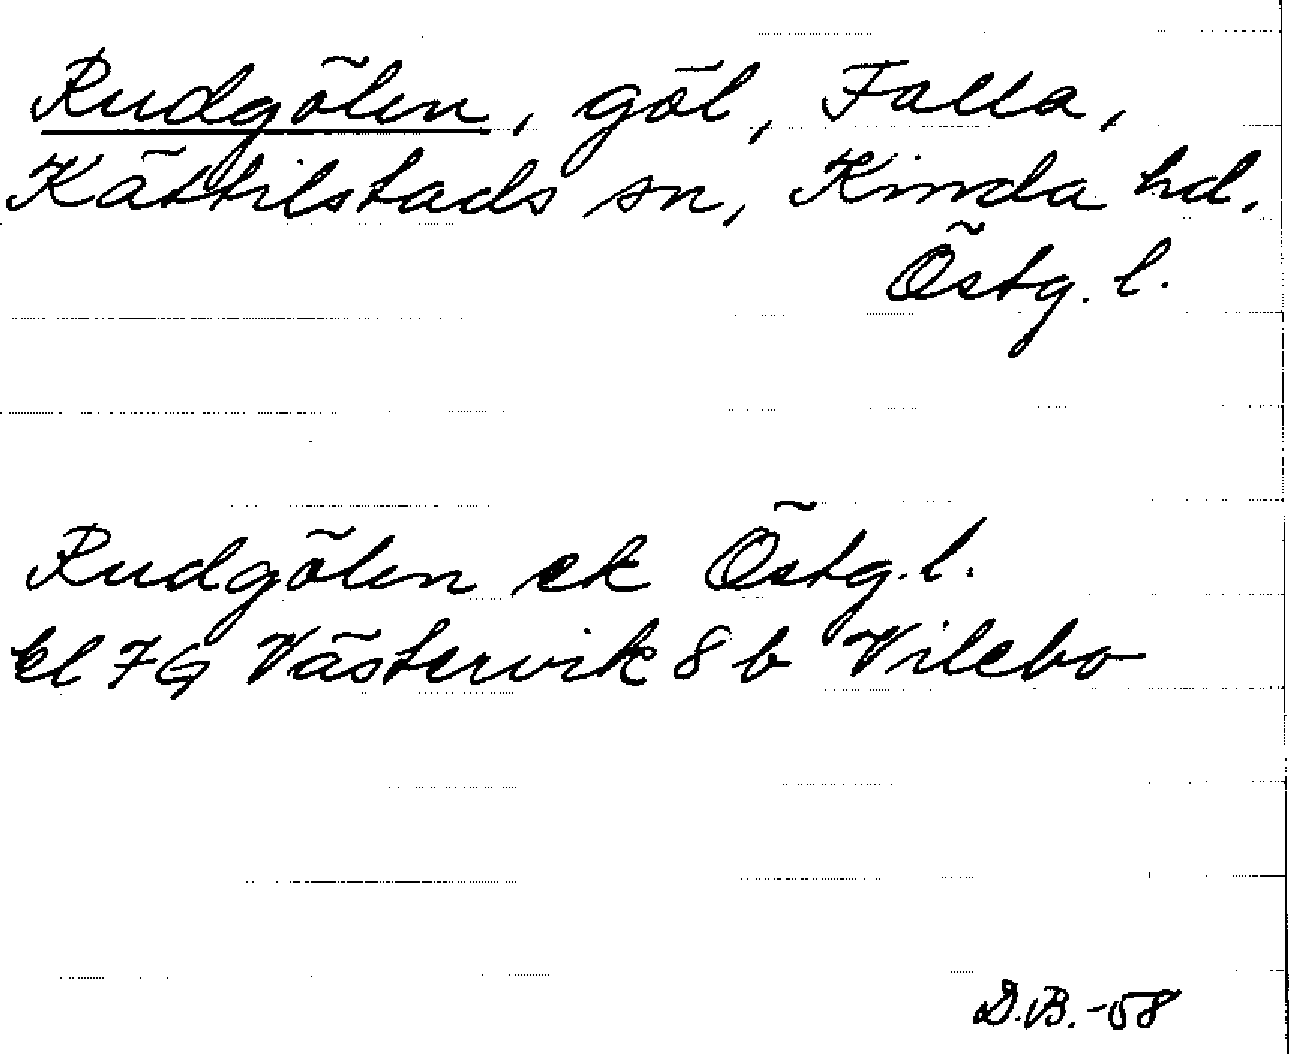 Rudgölen, göl, Falla,
Kättilstads sn, Kinda hd.
Östg. l.
Rudgölen ek Östg. l.
bl 7G Västervik 8 b Vilebo
D.B.-58